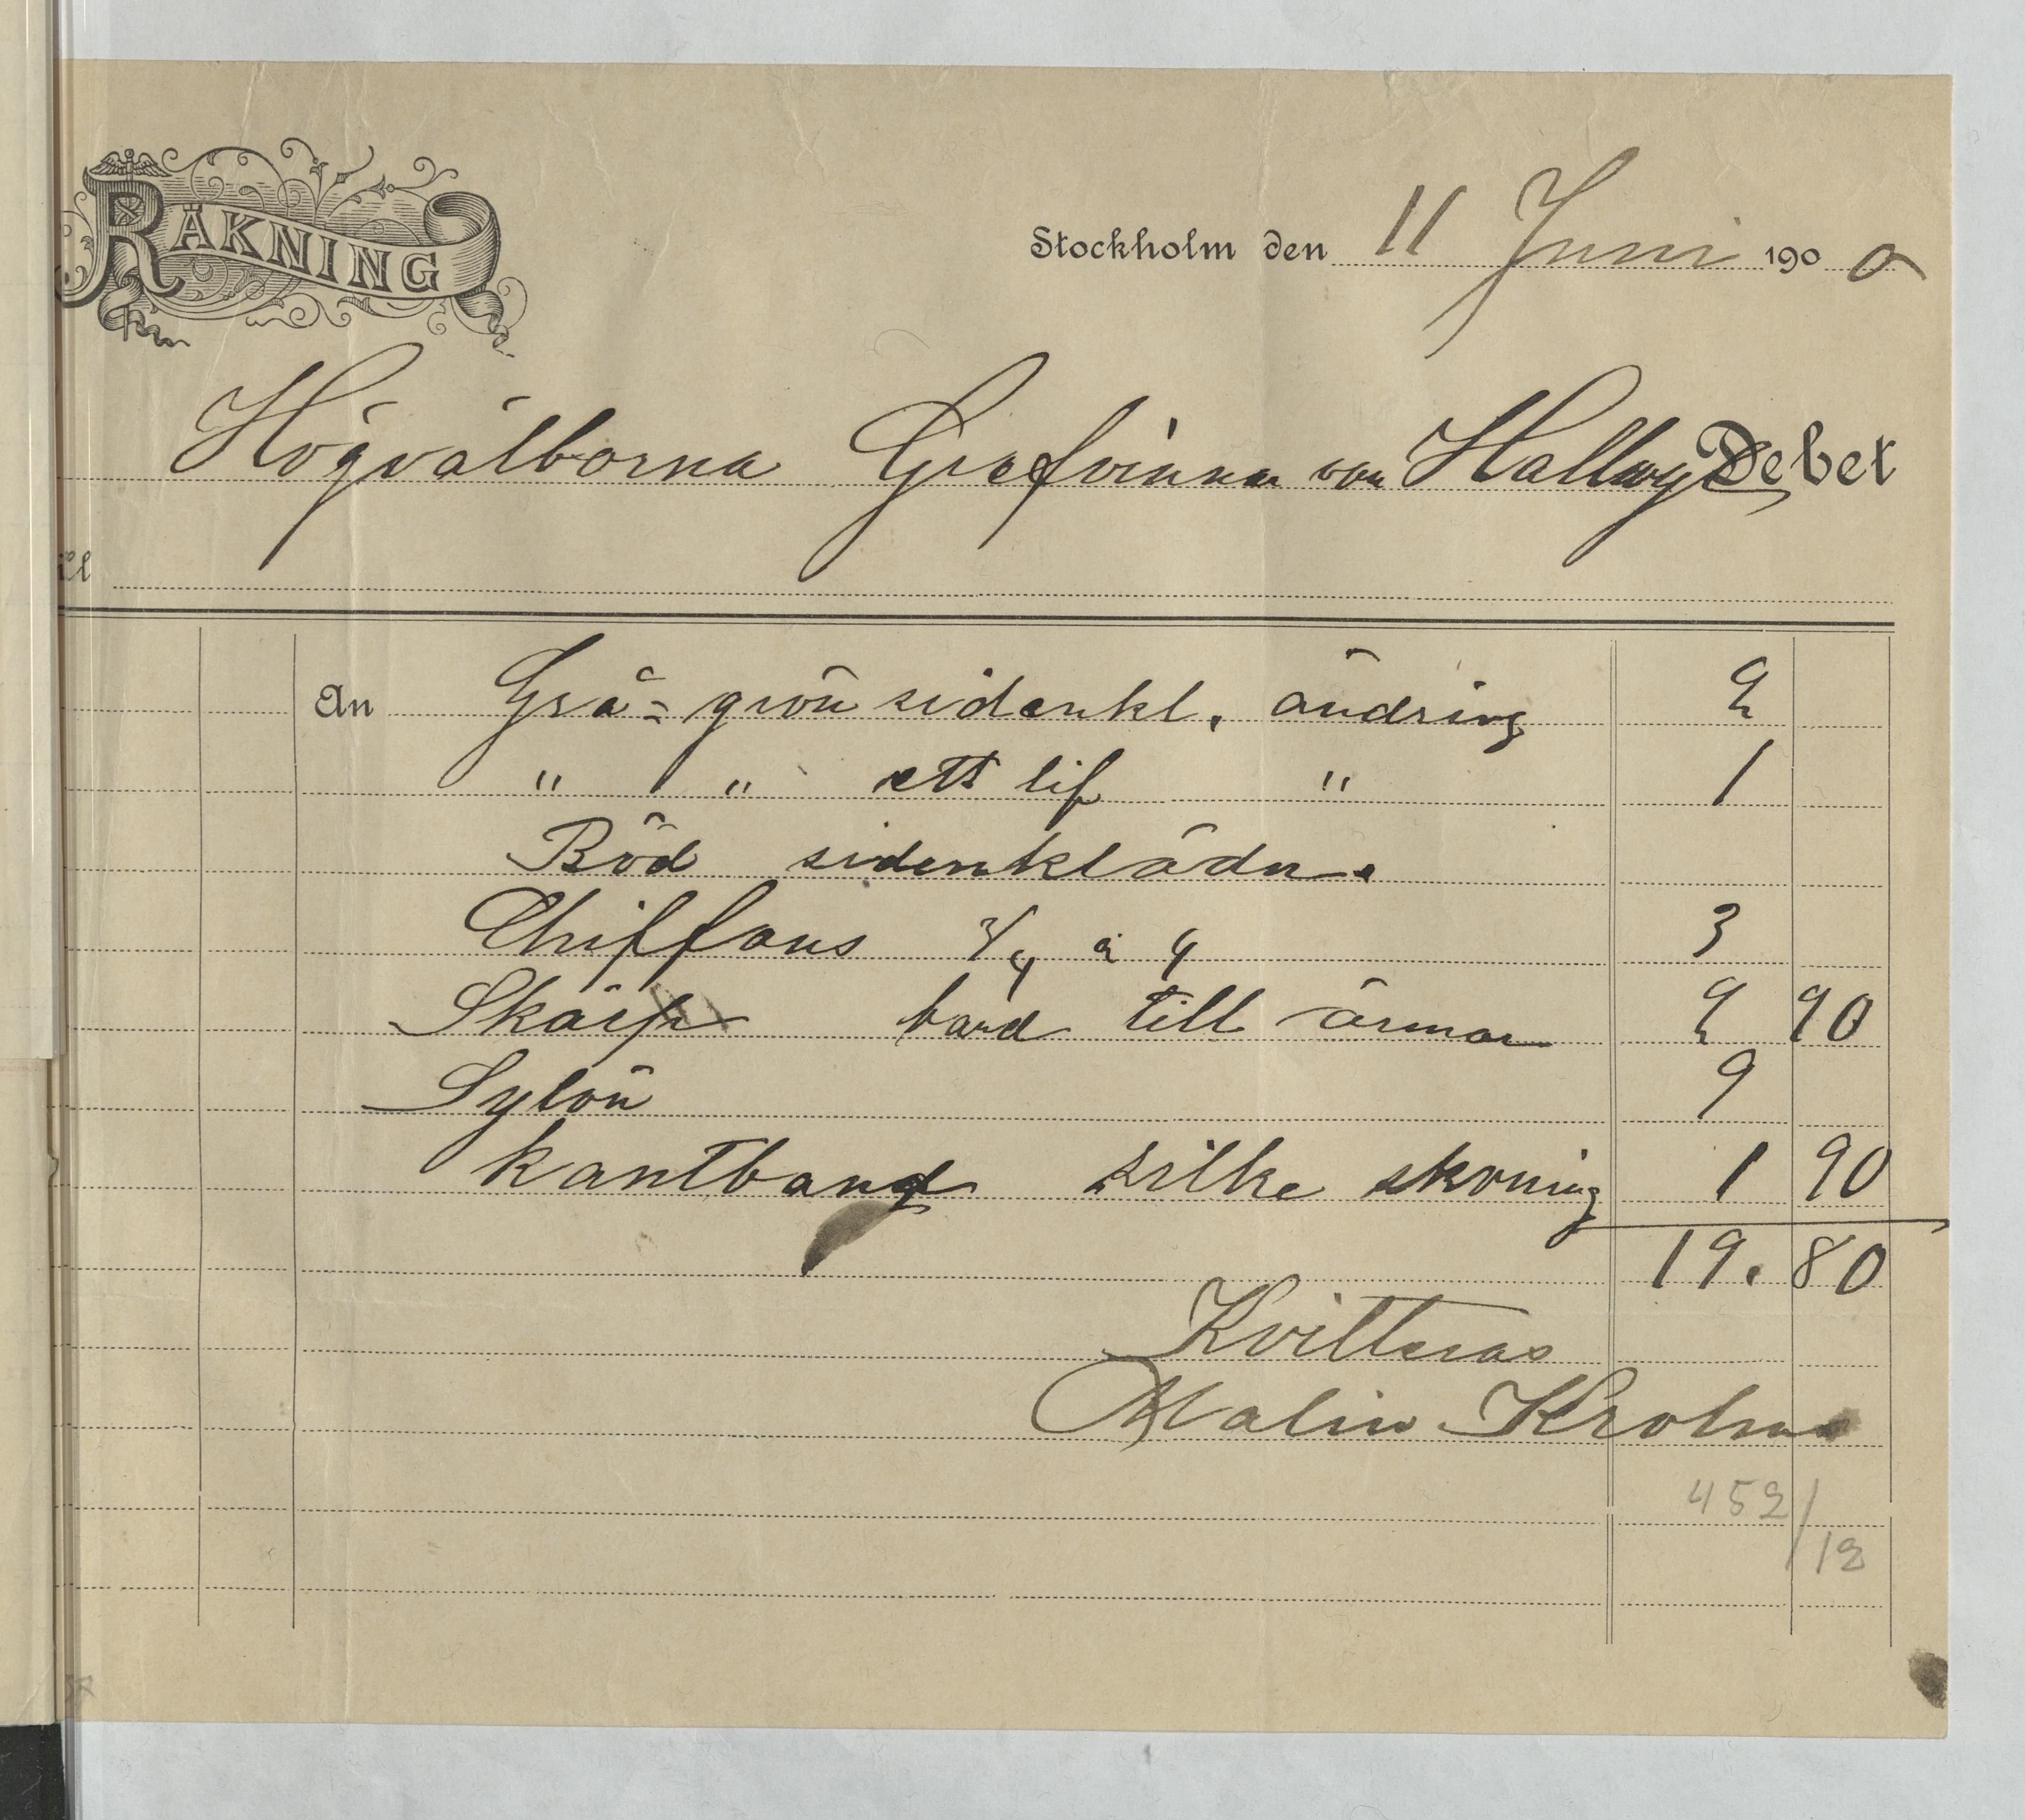 RÄKNING
Stockholm den 11 Juni 1900
Högvälborna Grefvinnan von Hallwyl Debet
An Grå= grön sidenkl. ändring 2
" " ett lif " 1
Röd sidenklädn.
Chiffons 3/4 à 4 3
Skärp band till ärmar 2 90
Sylön 9
kantband silke skoning 1 90
19. 80
Kvitteras
Malin
452/
12